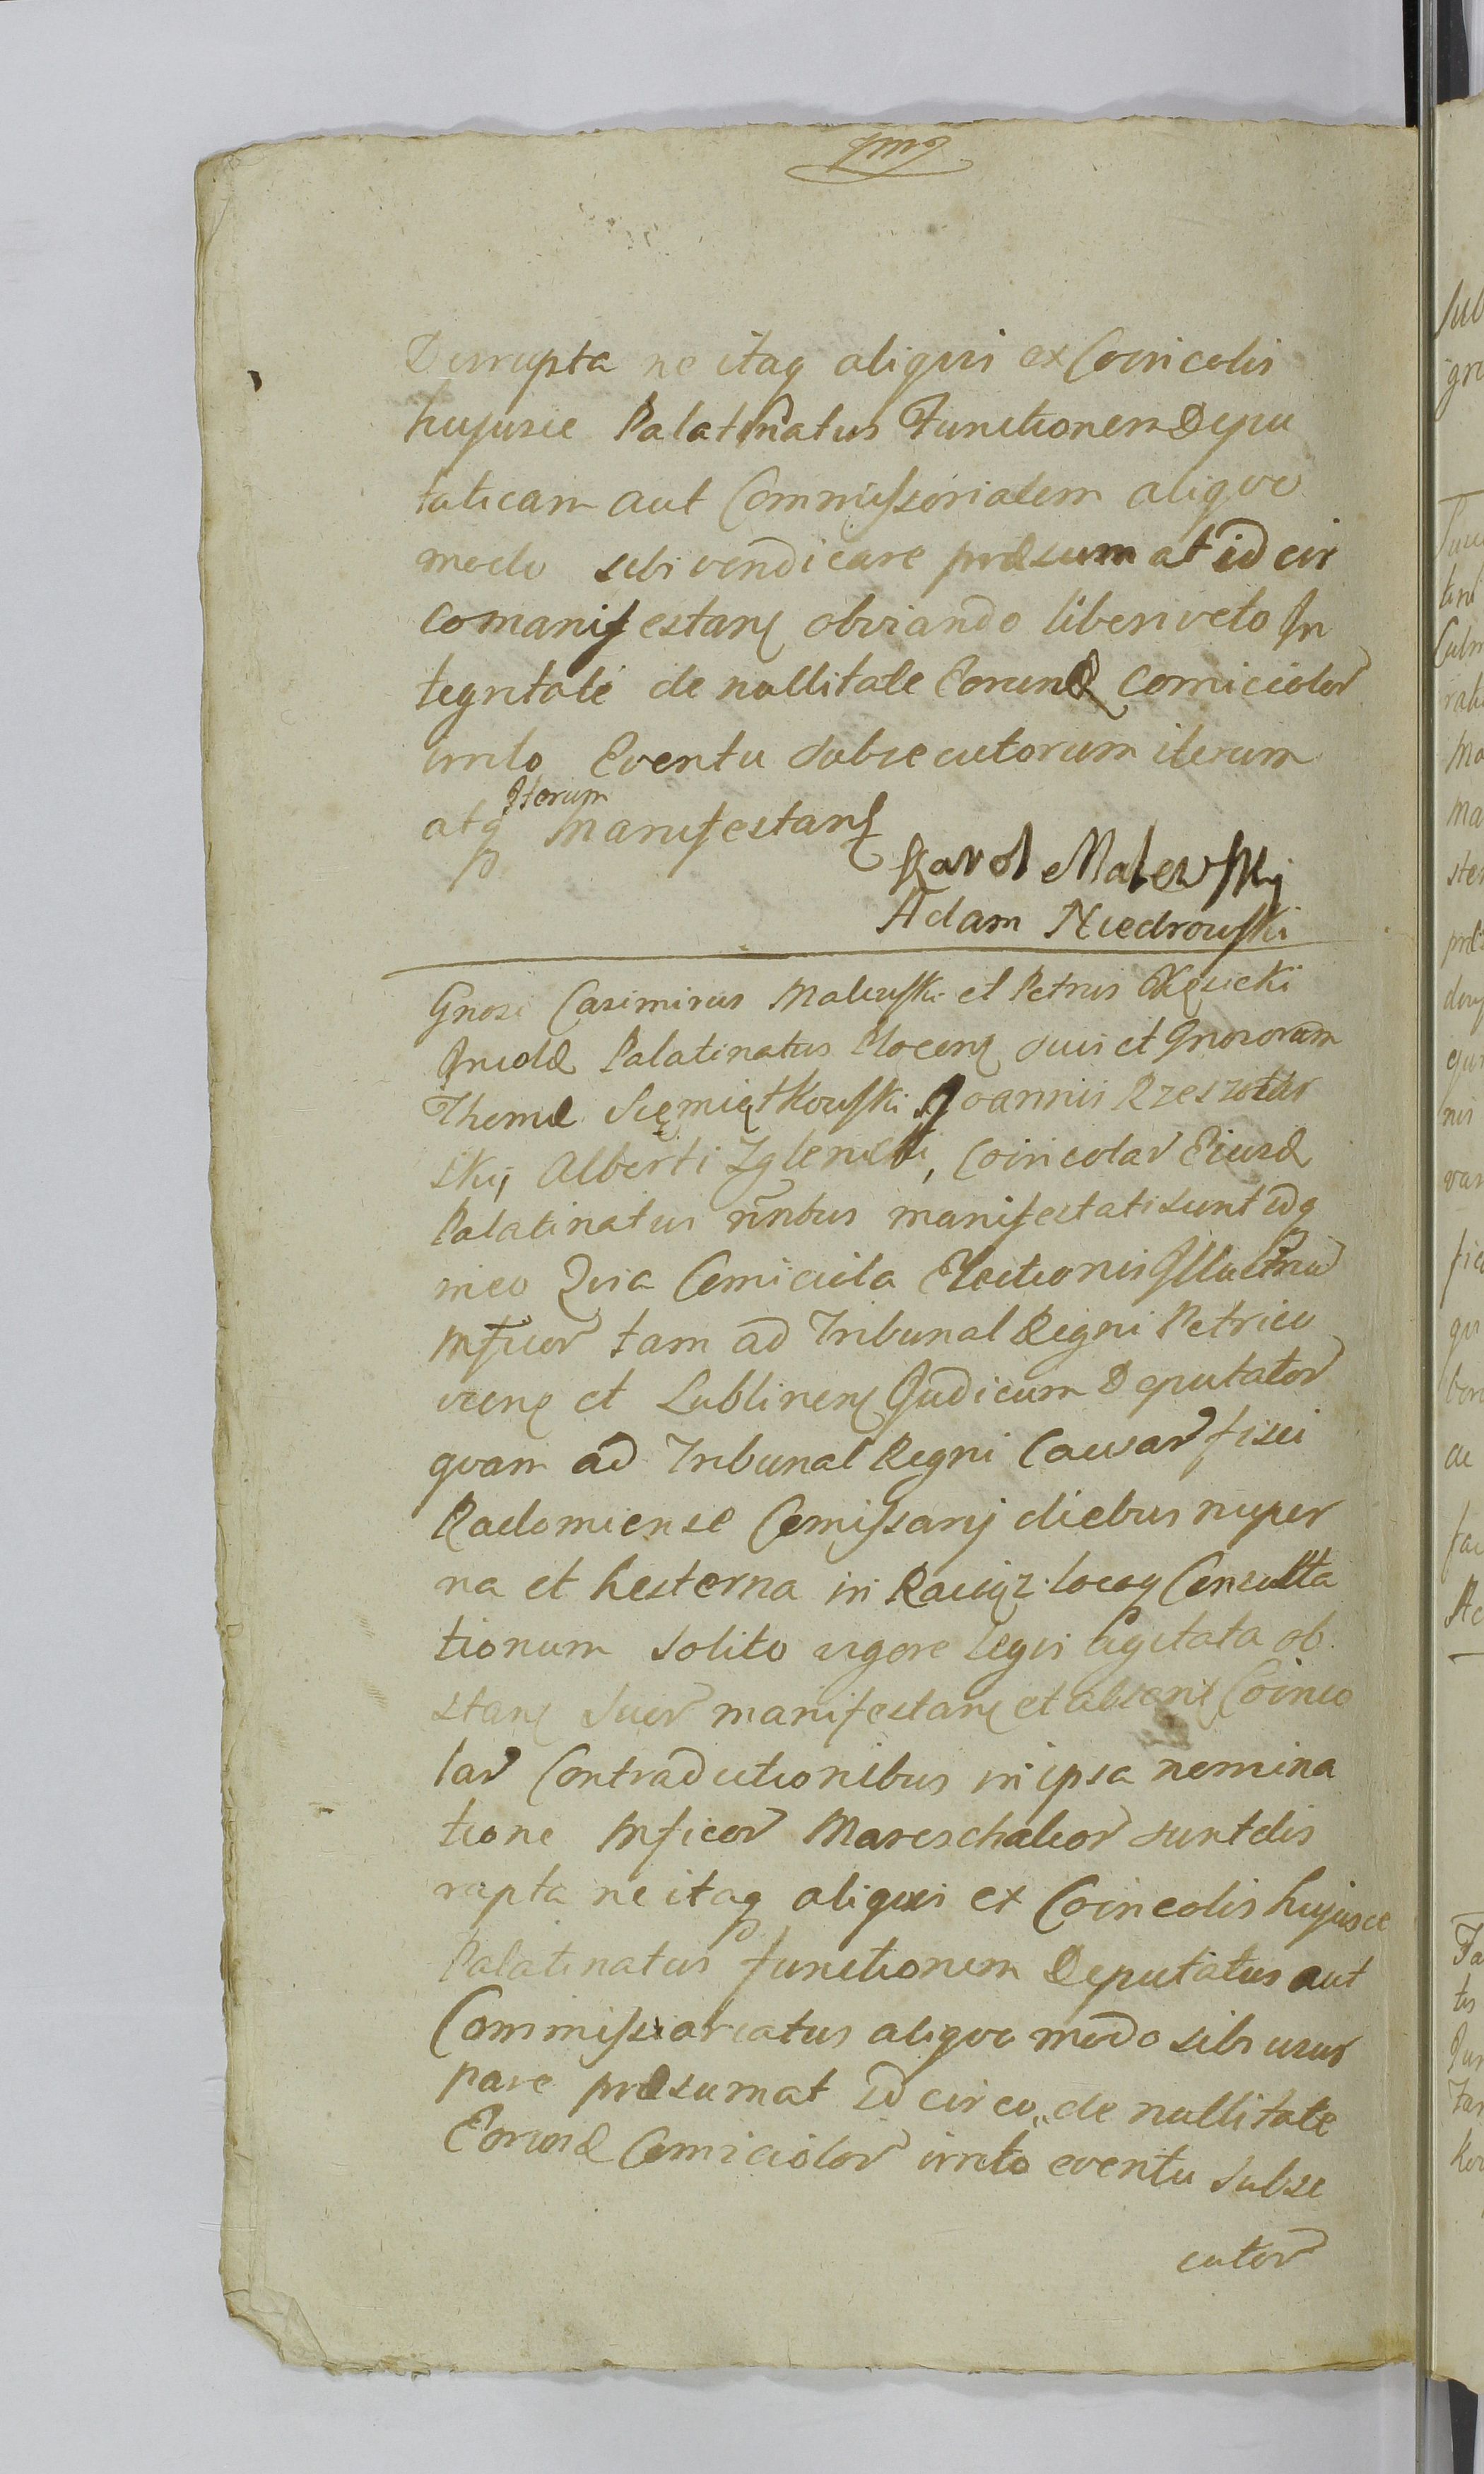 Dirrupta ne itaq aliquis ex Coincolis
hujusce Palatinatus Functionem Depu
taticam aut Commissorialem aliquo
modo sibi vendicare præsumat id cir
co manifestans obviando liberi veto In
tegritati de nullitate Eorund Comiciolor
irrito Eventu subsecutorum iterum
atq Iterum manifestans
Karol Malewskj
Adam Niedrowski
Gnosi Casimirus Malewski et Petrus
Incolæ Palatinatus Plocens suis et Gnosorum
Thomæ Siemiątkowski Joannis Rzeszotar
skij Alberti Zglenicki, Coincolar Eiusd
Palatinatus nnbus manifestati sunt idq
in eo Quia Comiciola Electionis Illustrium
Mficor tam ad Tribunal Regni Petrico
viens et Lublinens Judicum Deputator
quam ad Tribunal Regni Cawar fisci
Radomiense Comissarij diebus nuper
na et hesterna in Raciąz locoq Consulta
tionum solito vigore legis agitata ob
stans suor manifestans et absens Coinco
lar Contradictionibus in ipsa nomina
tione Mficor Mareschalcor sunt dis
rupta ne itaq aliquis ex Coincolis hujusce
Palatinatus functionem Deputatus aut
Commissoriatus aliquo modo sibi usur
pare præsumat id circo de nullitate
Eorund Comiciolor irrito eventu subse
cutor